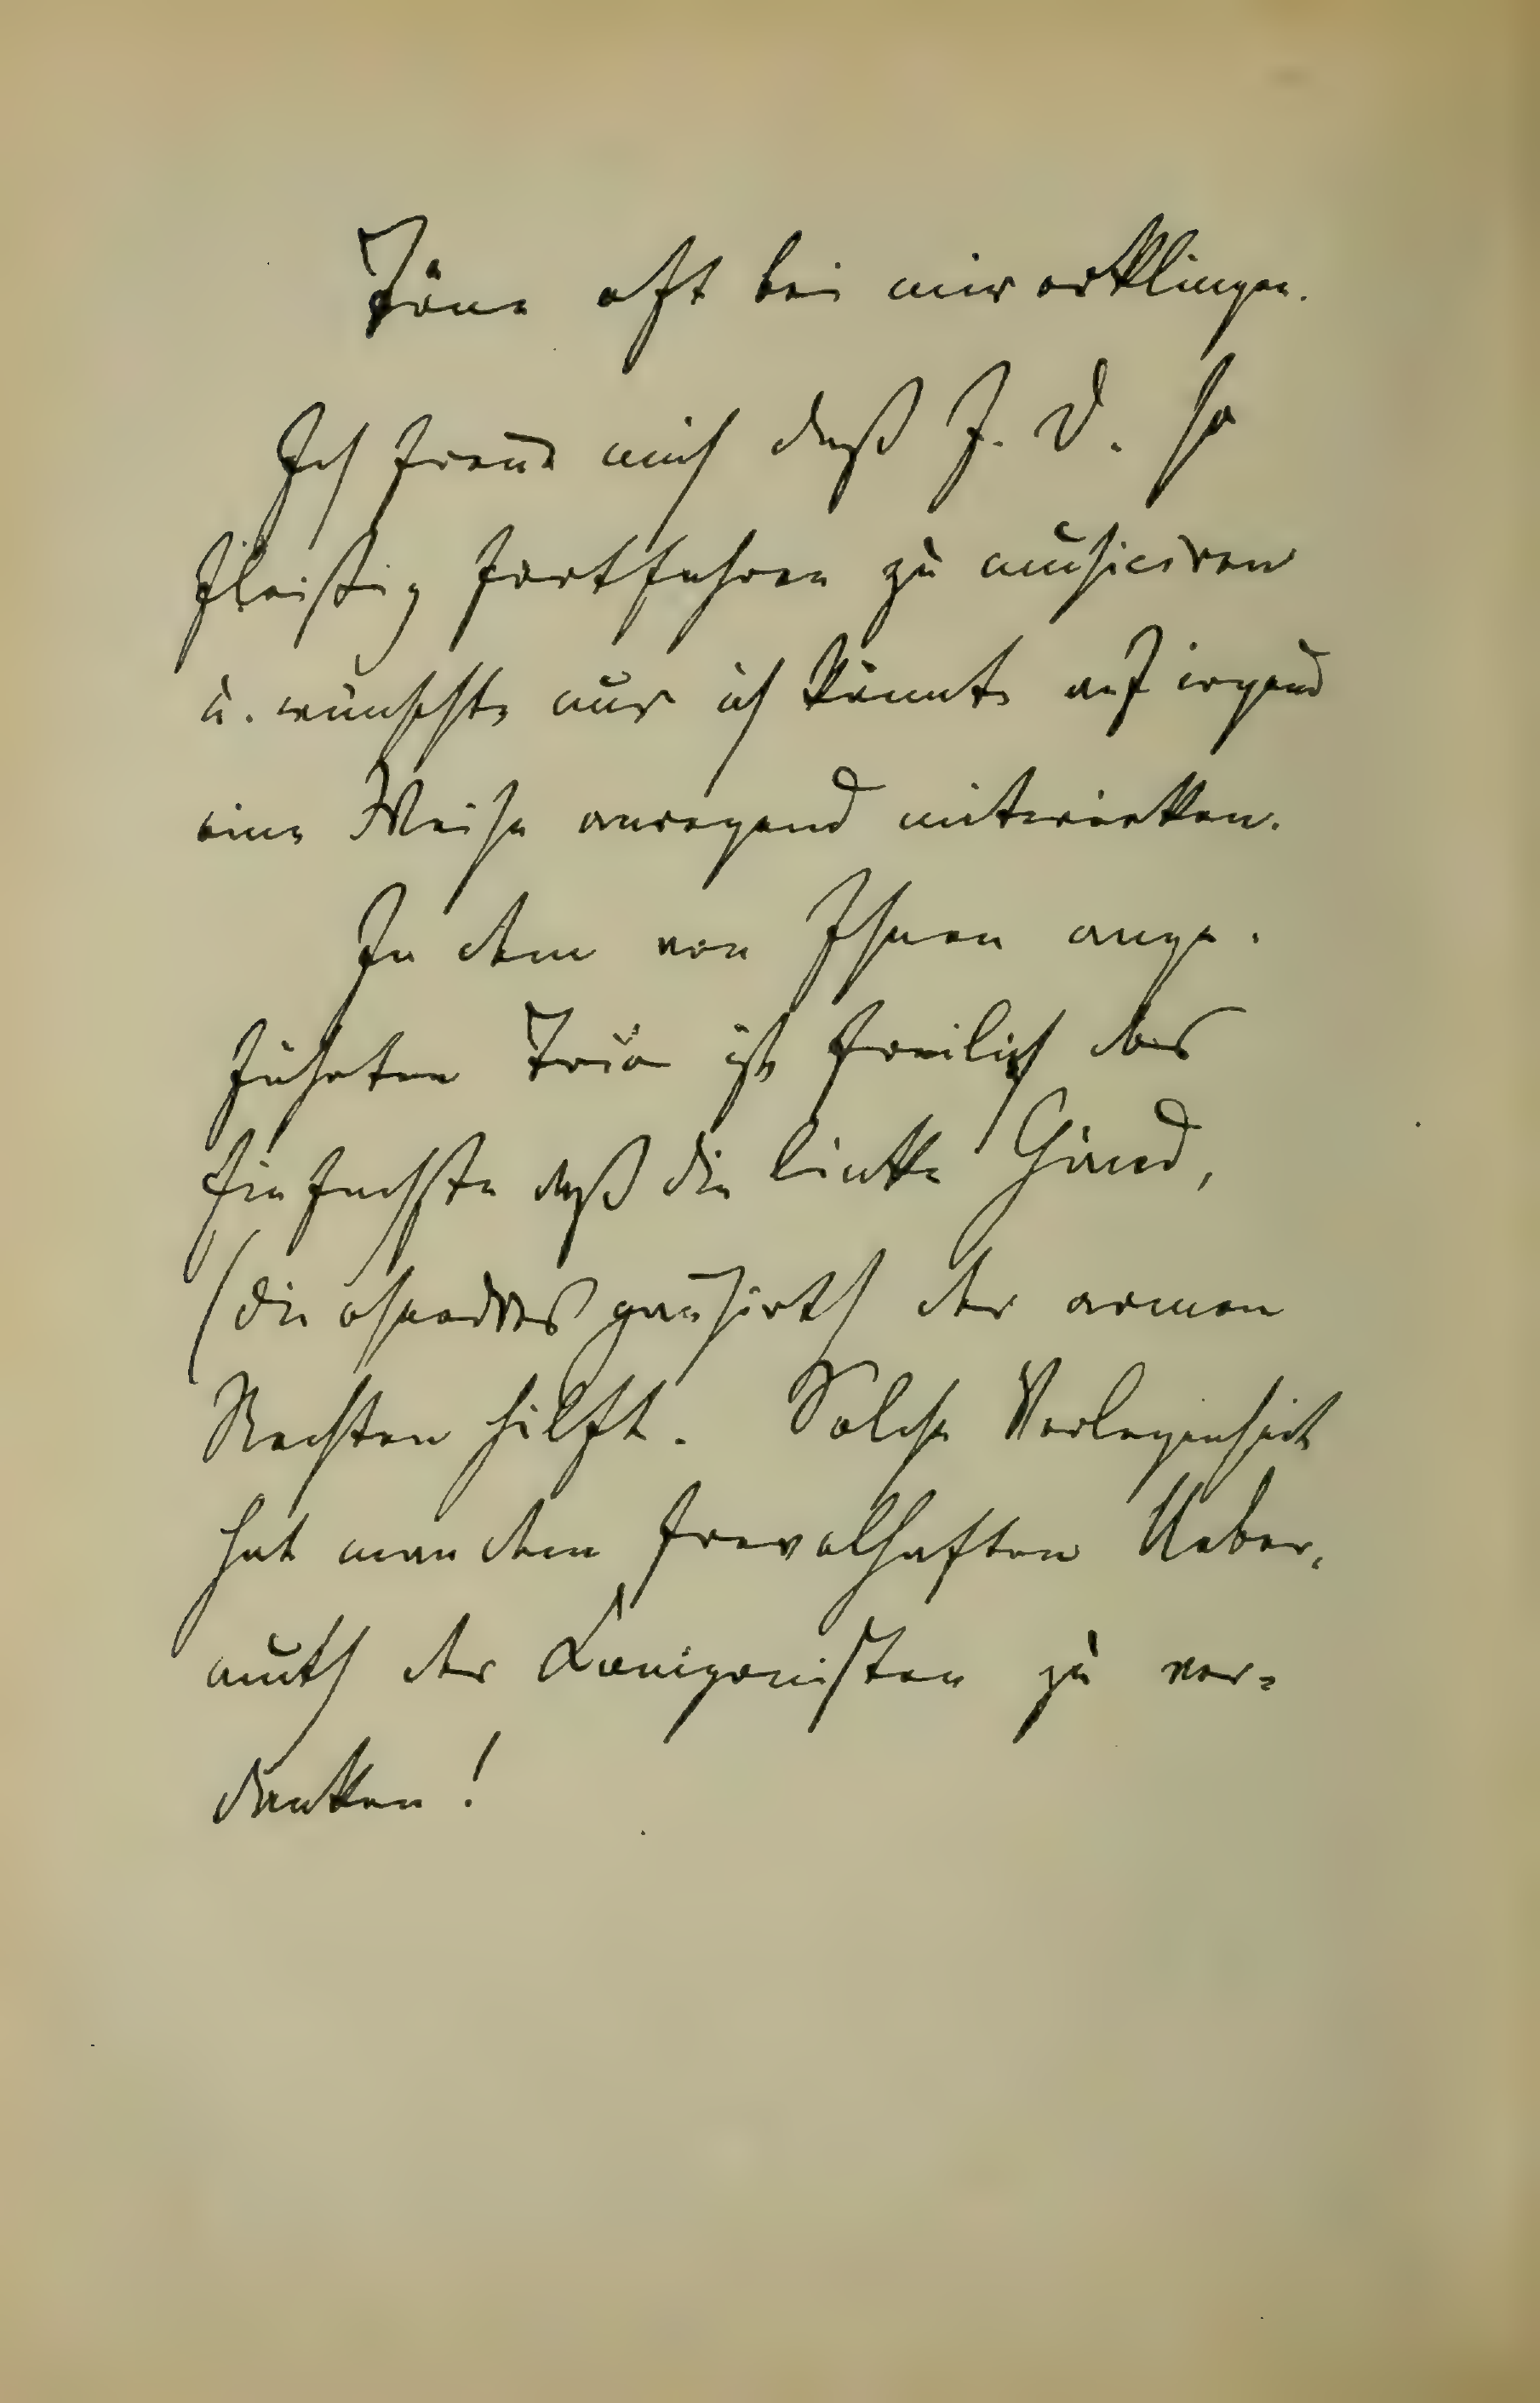 Töne oft bei mir erklingen.
Ich freue mich daß J. D. so
fleißig fortfuhren zu musiciren
u. wünschte nur ich könnte auf irgend
eine Weise anregend mitwirken.
In dem von Ihnen ange-
führten Trio ist freilich das
Einfachste daß die linke Hand,
(die ohnedies pausirt) der armen
Rechten hilft. Solche Verlegenheit
hat man dem frevelhaften Ueber-
muth der Componisten zu ver-
danken!